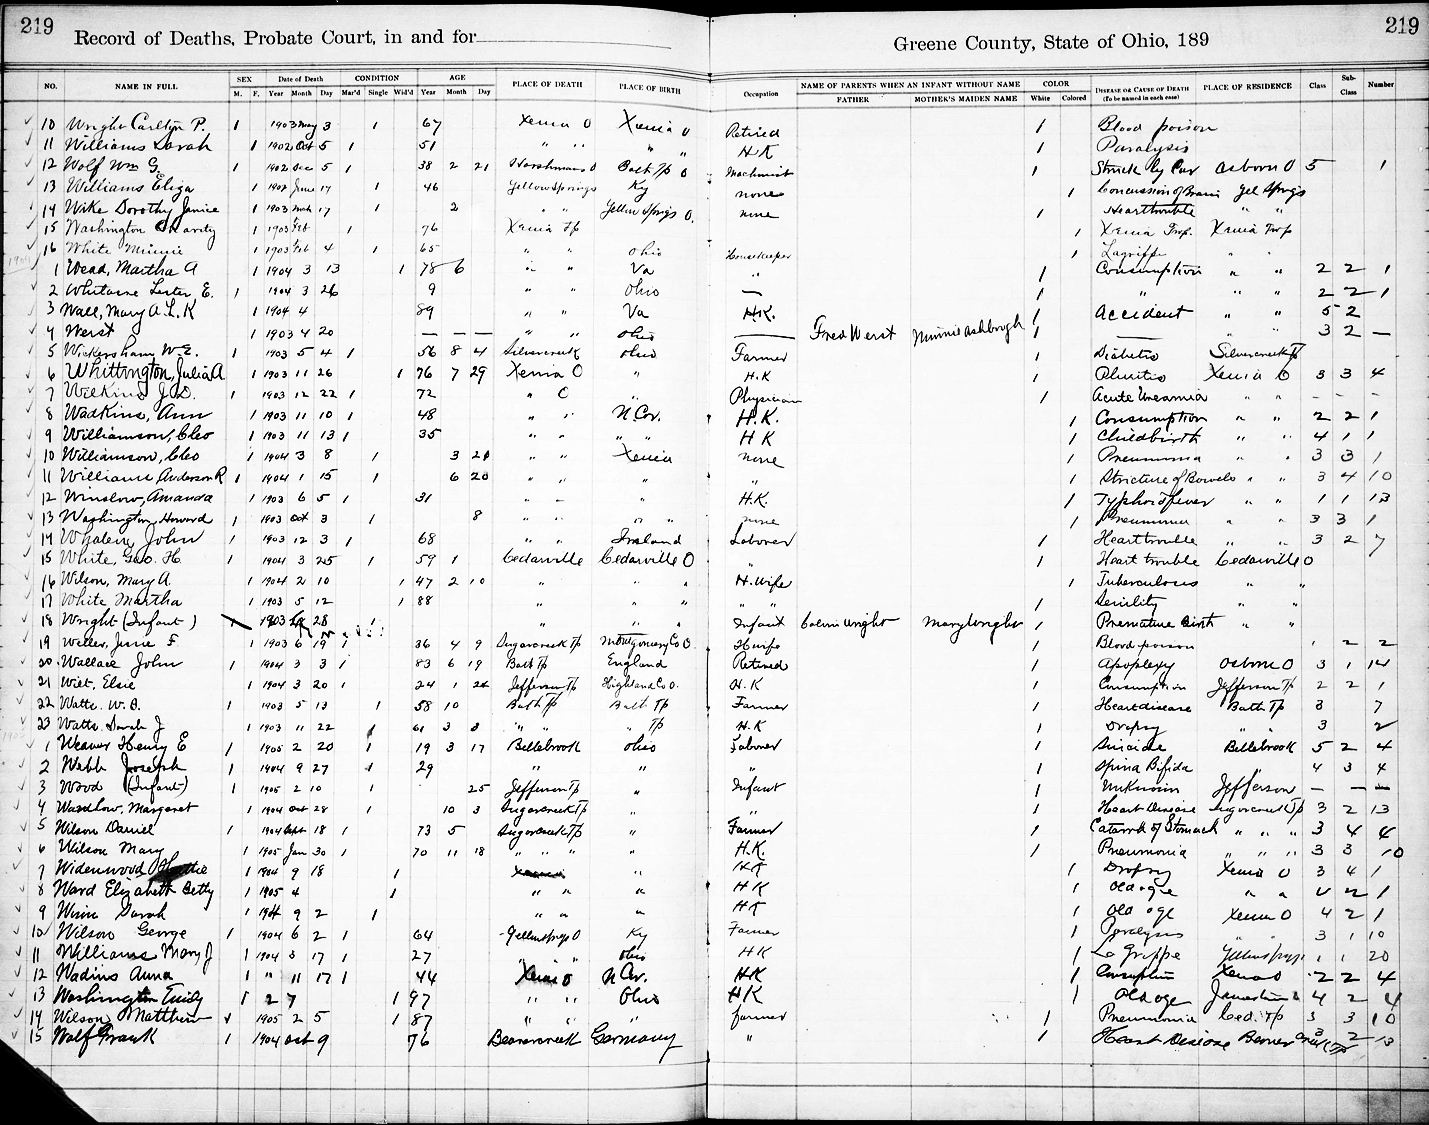 219
219
Record of Deaths, Probate Court, in and for
Greene County, State of Ohio, 189
NO. NAME IN FULL SEX M. F. Date of Death Year Month Day CONDITION Mar'd Single Wid'd AGE Year Month Day PLACE OF DEATH PLACE OF BIRTH Occupation NAME OF PARENTS WHEN AN INFANT WITHOUT NAME FATHER MOTHER'S MAIDEN NAME COLOR White Colored DISEASE OR CAUSE OF DEATH (To be named in each case) PLACE OF RESIDENCE Class Sub-Class Number
10 Wright Carlton P. 1 1903 May 3 1 67 Xenia O Xenia O Retired 1 Blood poison
11 Williams Sarah 1 1902 Oct 5 1 51 " " " " H K 1 Paralysis
12 Wolf Wm G. 1 1902 Dec 5 1 38 2 21 Harshmans O Bath Tp O Machinist 1 Struck by Car Osborn O 5 1
13 Williams Eliza 1 1902 June 17 1 46 Yellow Springs Ky none 1 Concussion of Brain Yel Springs
14 Wike Dorothy Janice 1 1903 Mch 17 1 2 " " Yellow Springs O. none 1 Heart trouble " "
15 Washington Charity 1 1903 Feb 1 76 Xenia Tp 1 Xenia Twp. Xenia Twp
16 White Minnie 1 1903 Feb 4 1 65 " " Ohio Housekeeper 1 Lagrippe " "
1904
1 Wead, Martha A 1 1904 3 13 1 78 6 " " Va " 1 Consumption " " 2 2 1
2 Whitacre Lester E. 1 1904 3 26 9 " " Ohio — 1 " " " 2 2 1
3 Wall, Mary A L. K 1 1904 4 89 " " Va H.K. 1 Accident " " 5 2
4 Werst 1 1903 4 20 — — — " " Ohio — Fred Werst Minnie Ashbaugh 1 — " " 3 2 —
5 Wickersham W.E. 1 1903 5 4 1 56 8 4 Silvercreek Ohio Farmer 1 Diabetis Silvercreek Tp
6 Whittington, Julia A 1 1903 11 26 1 76 7 29 Xenia O " H.K 1 Pluritis Xenia O 3 3 4
7 Wilkins J.D. 1 1903 12 22 1 72 " O " Physician 1 Acute Uraemia " " - - -
8 Wadkins, Ann 1 1903 11 10 1 48 " " N Car. H.K. 1 Consumption " " 2 2 1
9 Williamson, Cleo 1 1903 11 13 1 35 " " " " H K 1 Childbirth " " 4 1 1
10 Williamson, Cleo 1 1904 3 8 1 3 21 " " Xenia none 1 Pneumonia " " 3 3 1
11 Williams Anderson R 1 1904 1 15 1 6 20 " " " " 1 Stricture of Bowels " " 3 4 10
12 Winslow, Amanda 1 1903 6 5 1 31 " " " H.K. 1 Typhoid fever " " 1 1 13
13 Washington, Howard 1 1903 Oct 3 1 8 " " " " none 1 Pneumonia " " 3 3 1
14 Whalen, John 1 1903 12 3 1 68 " " Ireland Laborer 1 Heart trouble " " 3 2 7
15 White, Geo. H. 1 1904 3 25 1 59 1 Cedarville Cedarville O " 1 Heart trouble Cedarville O
16 Wilson, Mary A. 1 1904 2 10 1 47 2 10 " " " H. Wife 1 Tuberculosis " "
17 White Martha 1 1903 5 12 1 88 " " " " " 1 Senility " "
18 Wright (Infant) 1903 28 1 " " " Infant Calvin Wright Mary Wright 1 Premature Birth " "
19 Weller, Jesse F. 1903 6 19 1 36 4 9 Sugarcreek Tp Montgomery Co O. H wife 1 Blood poison 1 2 2
20 Wallace John 1 1904 3 3 1 83 6 19 Bath Tp England Retired 1 Apoplexy Osborn O 3 1 14
21 Wilt, Elsie 1 1904 3 20 1 24 1 24 Jefferson Tp Highland Co O. H. K 1 Consumption Jefferson Tp 2 2 1
22 Watts. W. B. 1 1903 5 13 1 58 10 Bath Tp Bath Tp Farmer 1 Heart disease Bath Tp 3 7
23 Watts, Sarah J 1 1903 11 22 1 61 3 8 " " " Tp H.K 1 Dropsy " 3 2
1905
1 Weaver Henry E 1 1905 2 20 1 19 3 17 Bellebrook Ohio Laborer 1 Suicide Bellbrook 5 2 4
2 Webb Joseph 1 1904 9 27 1 29 " " " 1 Spina Bifida " 4 3 4
3 Wood (Infant) 1 1905 2 10 1 25 Jefferson Tp " Infant 1 Unknown Jefferson — — —
4 Wardlow, Margaret 1 1904 Oct 28 1 10 3 Sugarcreek Tp " " 1 Heart Disease Sugarcreek Tp 3 2 13
5 Wilson Daniel 1 1904 Sept 18 1 73 5 Sugarcreek Tp " Farmer 1 Catarrh of Stomach " " " 3 4 4
6 Wilson Mary 1 1905 Jan 30 1 70 11 18 " " " " H.K. 1 Pneumonia " " " 3 3 10
7 Widenwood Hattie 1 1904 9 18 1 Xenia " H K 1 Dropsy Xenia O 3 4 1
8 Ward Elizabeth Betty 1 1905 4 1 " " " H K 1 Old age " " 4 2 1
9 Winn Sarah 1 1904 9 2 1 " " " H K 1 Old age Xenia O 4 2 1
10 Wilson George 1 1904 6 2 1 64 Yellow Spgs O Ky Farmer 1 Paralysis " " 3 1 10
11 Williams Mary J 1 1904 3 17 1 27 " " Ohio H K 1 La Grippe Yellow Spgs 1 1 20
12 Wadins Anna 1 " 11 17 1 44 Xenia O N Car. H K 1 Consumption Xenia O 2 2 4
13 Washington Emily 1 2 7 1 97 " " Ohio H K 1 Old age Jamestown 4 2 4
14 Wilson Matthew 1 1905 2 5 1 87 " " " farmer 1 Pneumonia Ced. Tp 3 3 10
15 Wolf Frank 1 1904 Oct 9 76 Beavercreek Germany " 1 Heart Disease Beaver Creek Tp 3 2 13